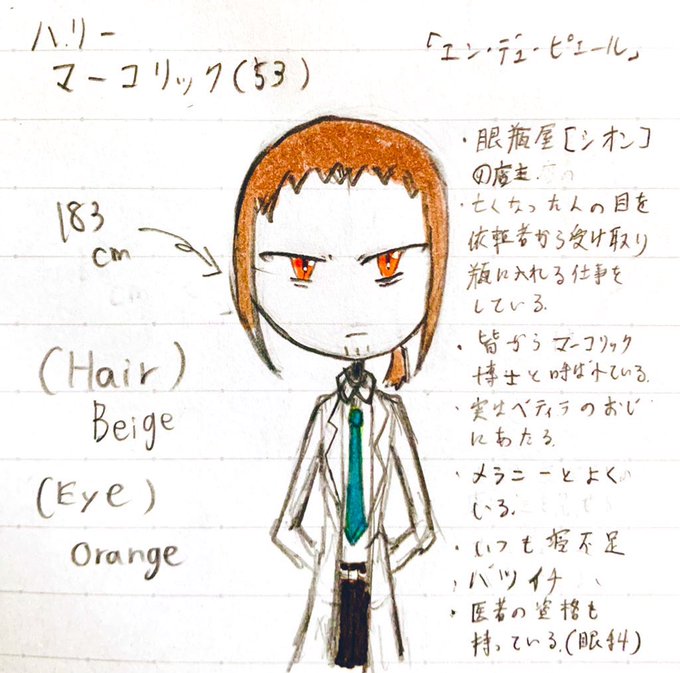 ハリー
マーコリック(53)
「エン・デュ・ピエール」
183
cm
(Hair)
Beige
(Eye)
Orange
・眼瓶屋[シオン]
の店主
・亡くなった人の目を
依頼者から受け取り
瓶に入れる仕事を
している.
・皆からマーコリック
博士と呼ばれている.
・実はベティラのおじ
にあたる.
・メラニーとよく
いる.
・いつも寝不足
・バツイチ
・医者の資格も
持っている.(眼科)